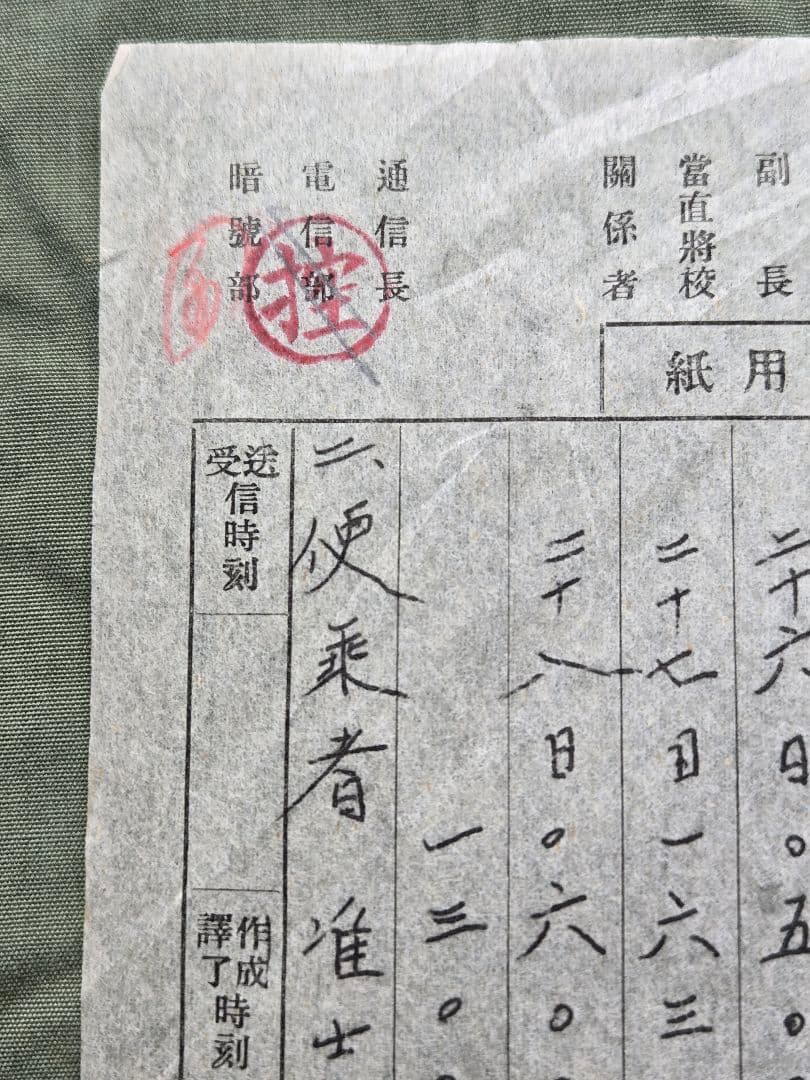 副長
當直將校
關係者
通信長
電信部
暗號部
控
用紙
二十六日〇五〇
二十七日一六三
二十八日〇六〇
一三〇
二、便乘者 准士
受送信時刻
譯了作成時刻